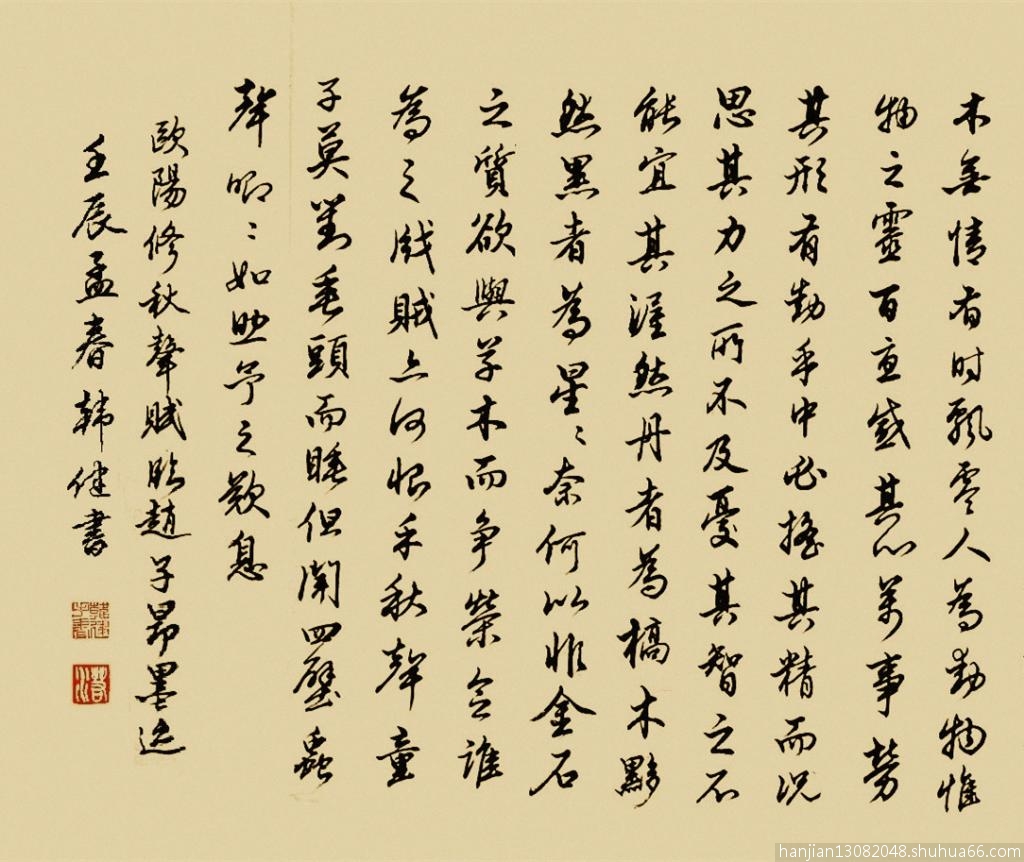 木無情有时飄零人為動物惟
物之靈百憂感其心萬事勞
其形有動乎中必搖其精而况
思其力之所不及憂其智之不
能宜其渥然丹者為槁木黟
然黑者為星〻奈何以非金石
之質欲與草木而争榮念誰
為之戕賊亦何恨乎秋聲童
子莫對垂頭而睡但聞四壁蟲
聲唧〻如助予之歎息
歐陽修秋聲賦臨趙子昂墨迹
壬辰孟春韓健書
hanjian13082048.shuhua66.com